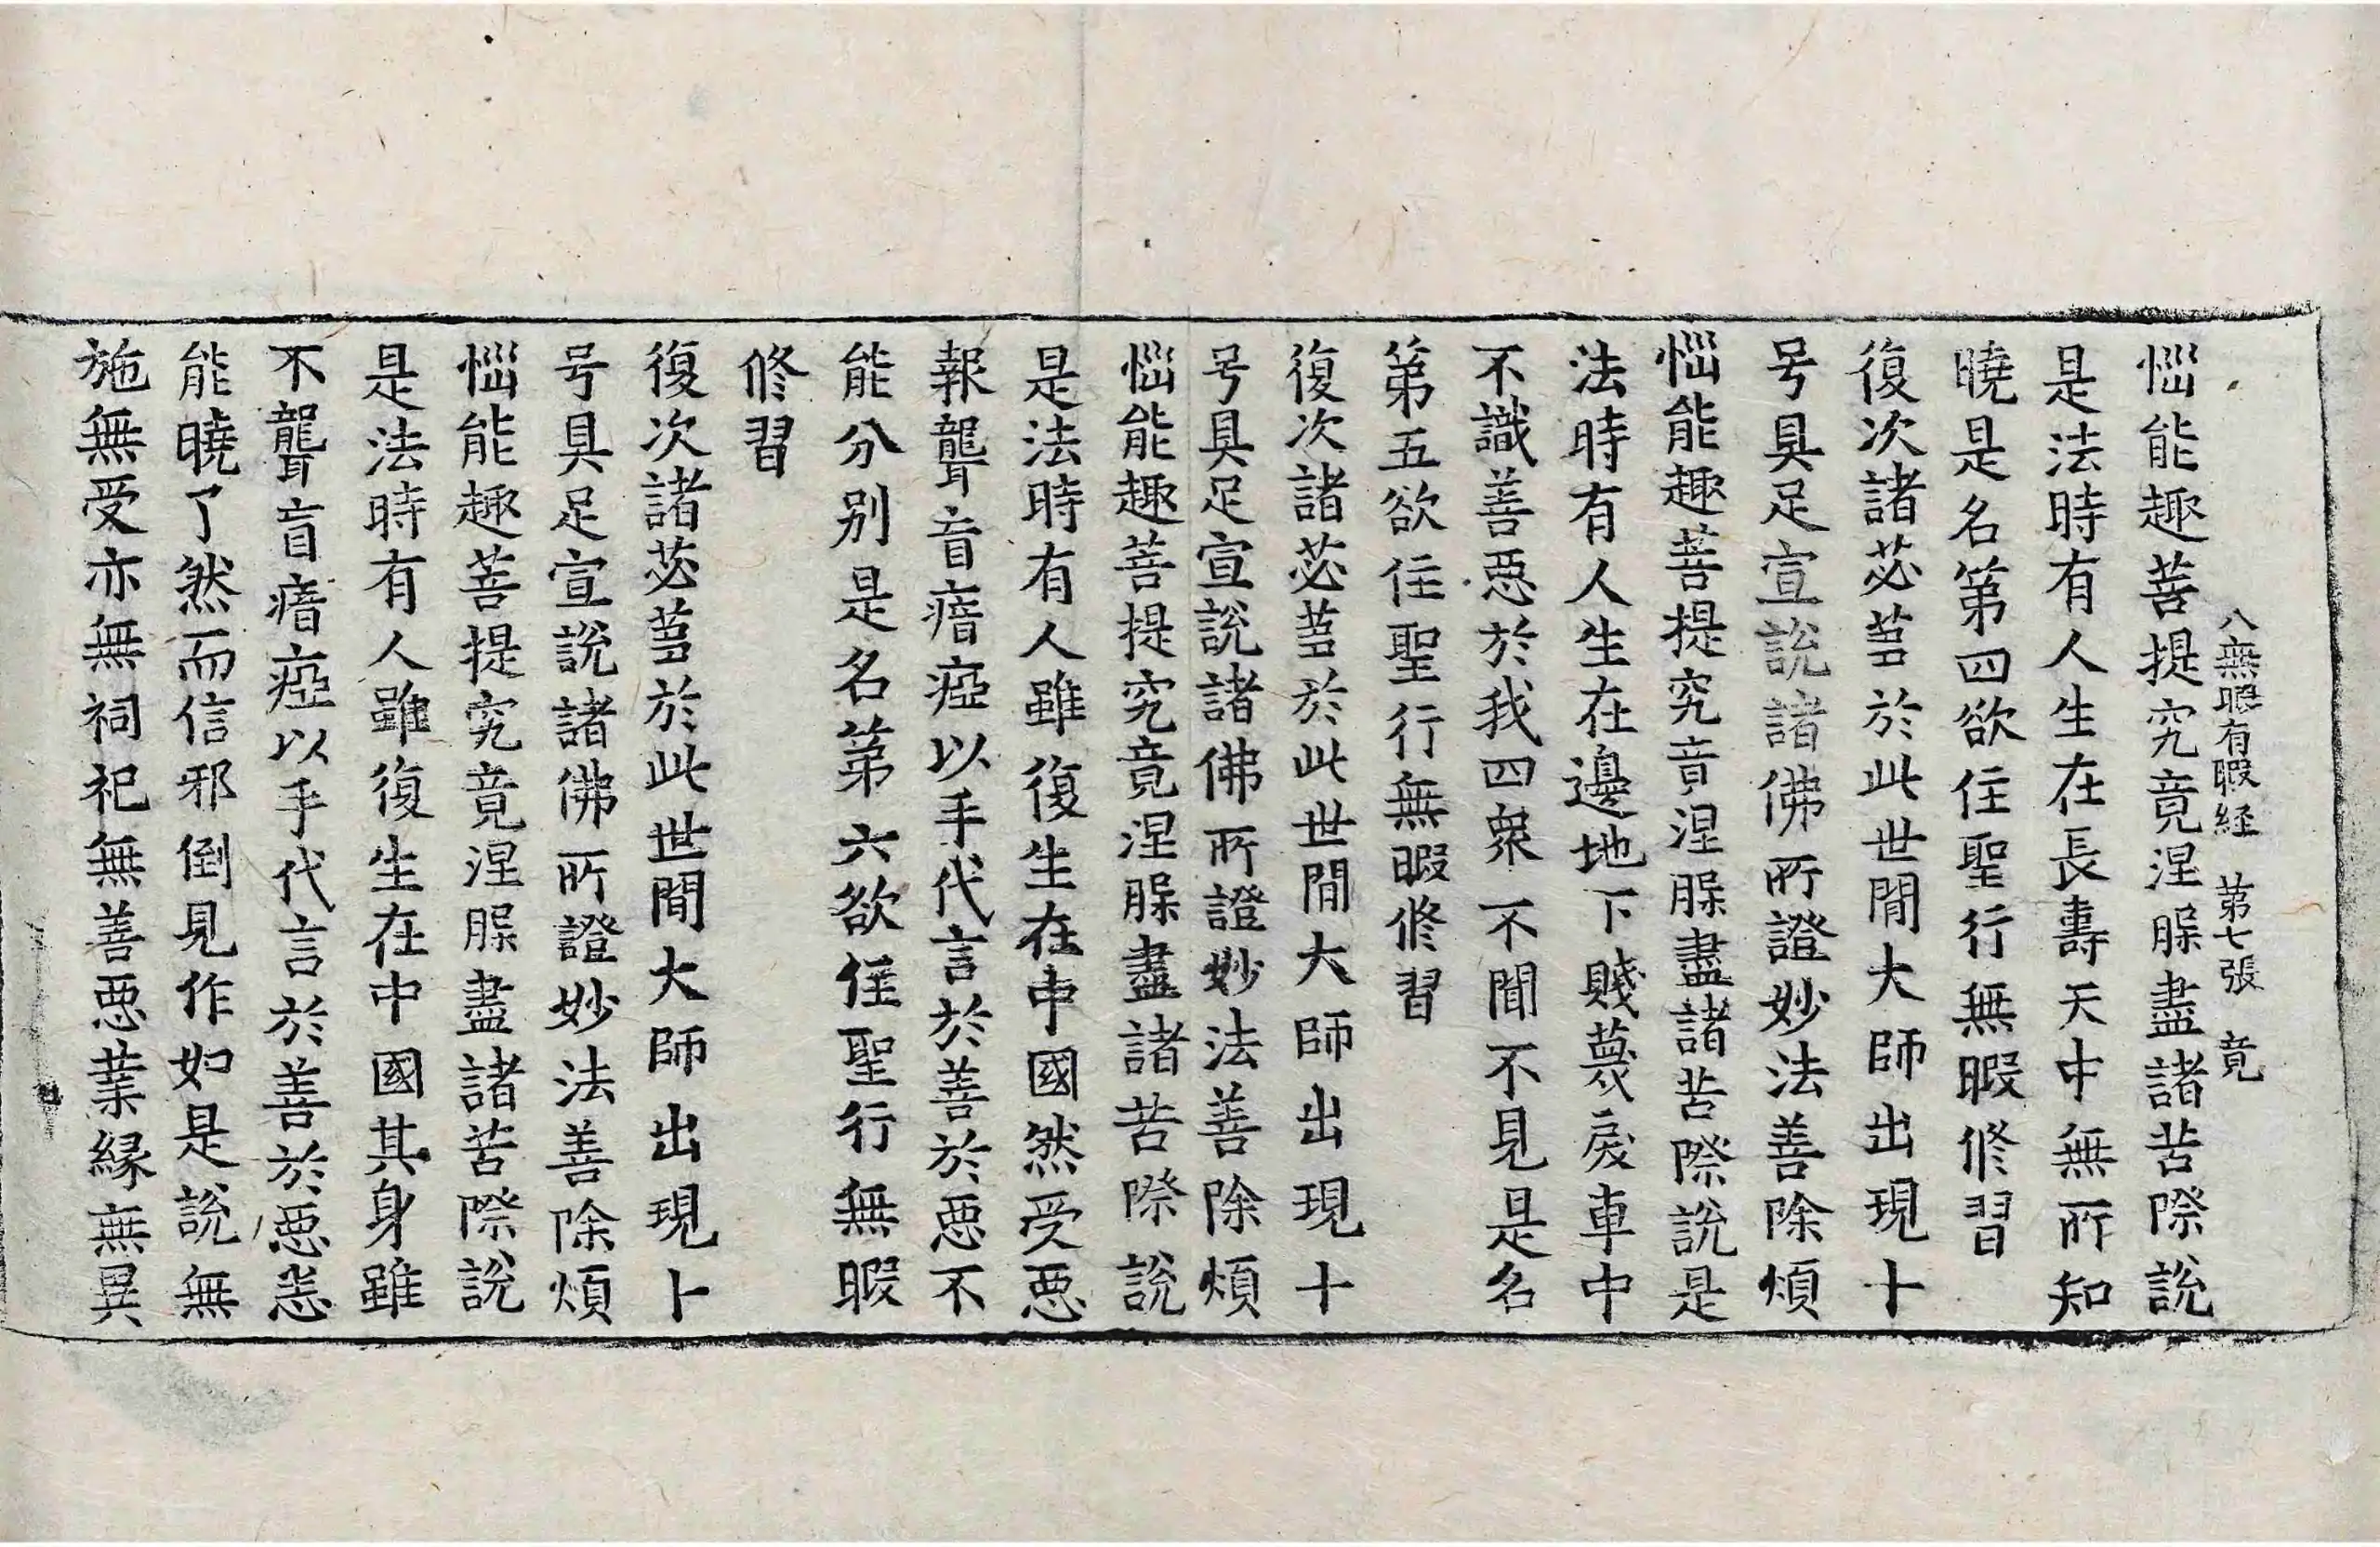 八無暇有暇経 第七張 竟
惱能趣菩提究竟涅槃盡諸苦際說
是法時有人生在長壽天中無所知
曉是名第四欲住聖行無暇修習
復次諸苾蒭於此世間大師出現十
号具足宣說諸佛所證妙法善除煩
惱能趣菩提究竟涅槃盡諸苦際說是
法時有人生在邊地下賤蔑戾車中
不識善惡於我四衆不聞不見是名
第五欲住聖行無暇修習
復次諸苾蒭於此世間大師出現十
号具足宣說諸佛所證妙法善除煩
惱能趣菩提究竟涅槃盡諸苦際說
是法時有人雖復生在中國然受惡
報聾盲瘖瘂以手代言於善於惡不
能分別是名第六欲住聖行無暇
修習
復次諸苾蒭於此世間大師出現十
号具足宣說諸佛所證妙法善除煩
惱能趣菩提究竟涅槃盡諸苦際說
是法時有人雖復生在中國其身雖
不聾盲瘖瘂以手代言於善於惡悉
能曉了然而信邪倒見作如是說無
施無受亦無祠祀無善惡業緣無異